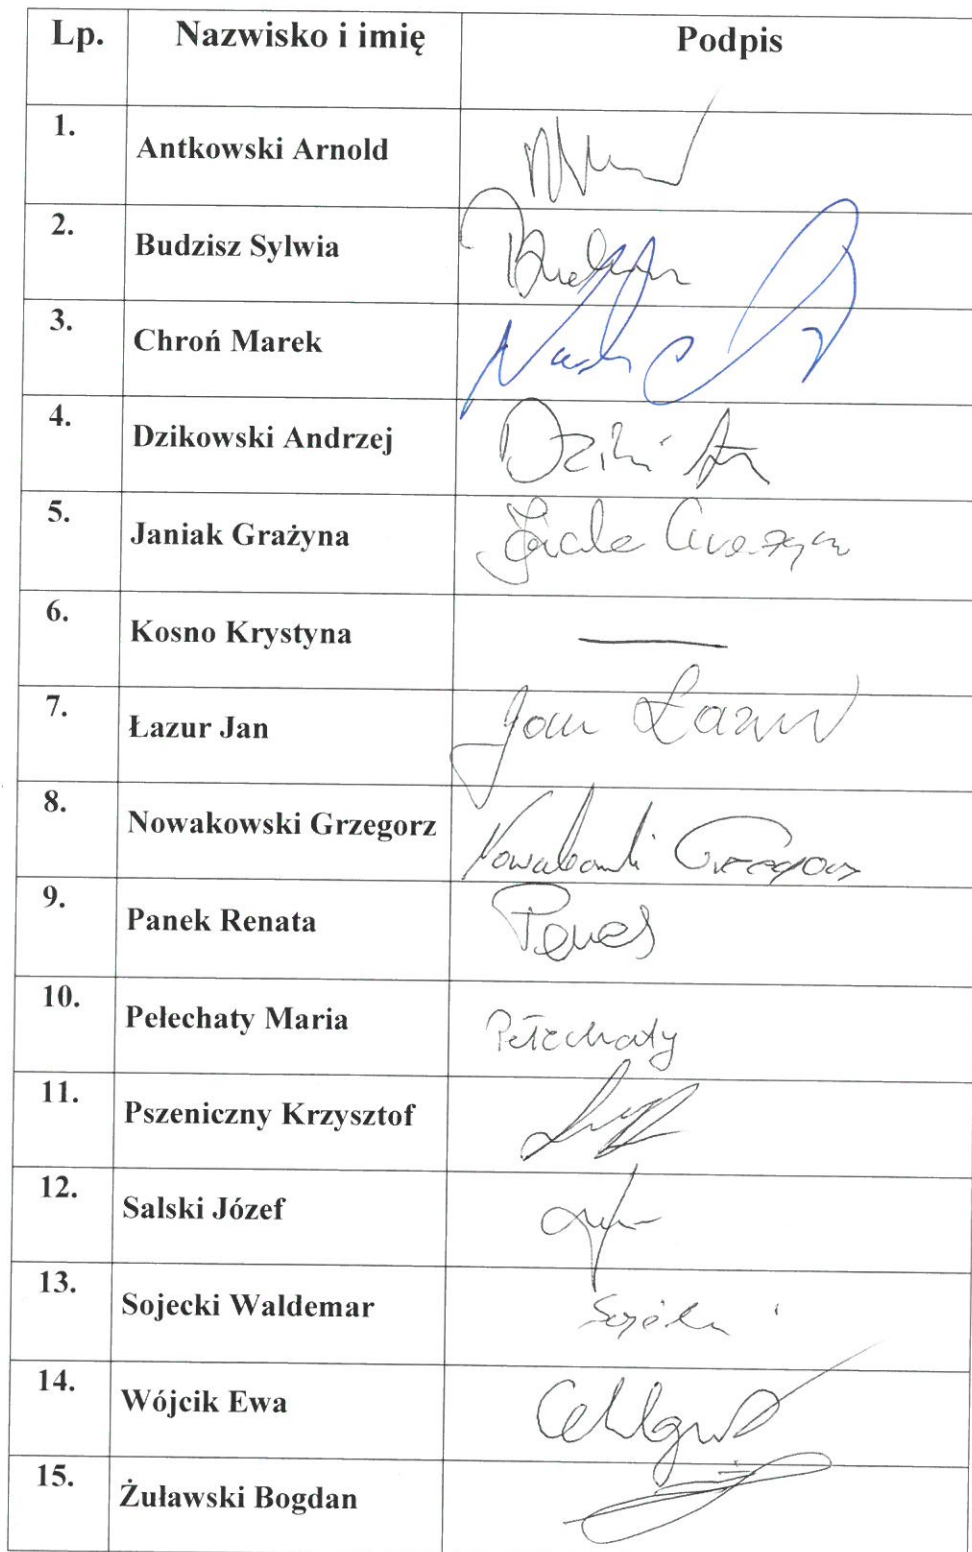 Lp. Nazwisko i imię Podpis
1. Antkowski Arnold
2. Budzisz Sylwia
3. Chroń Marek
4. Dzikowski Andrzej
5. Janiak Grażyna
6. Kosno Krystyna —
7. Łazur Jan Jan Łazur
8. Nowakowski Grzegorz Nowakowski Grzegorz
9. Panek Renata
10. Pełechaty Maria Pełechaty
11. Pszeniczny Krzysztof
12. Salski Józef
13. Sojecki Waldemar
14. Wójcik Ewa
15. Żuławski Bogdan